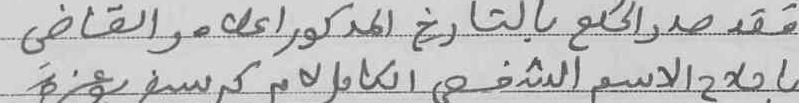 فقد صدر الحكم بالتاريخ المذكور اعلاه والقاضي
باصلاح الاسم الشخصي الكامل لام كم سفر عزة